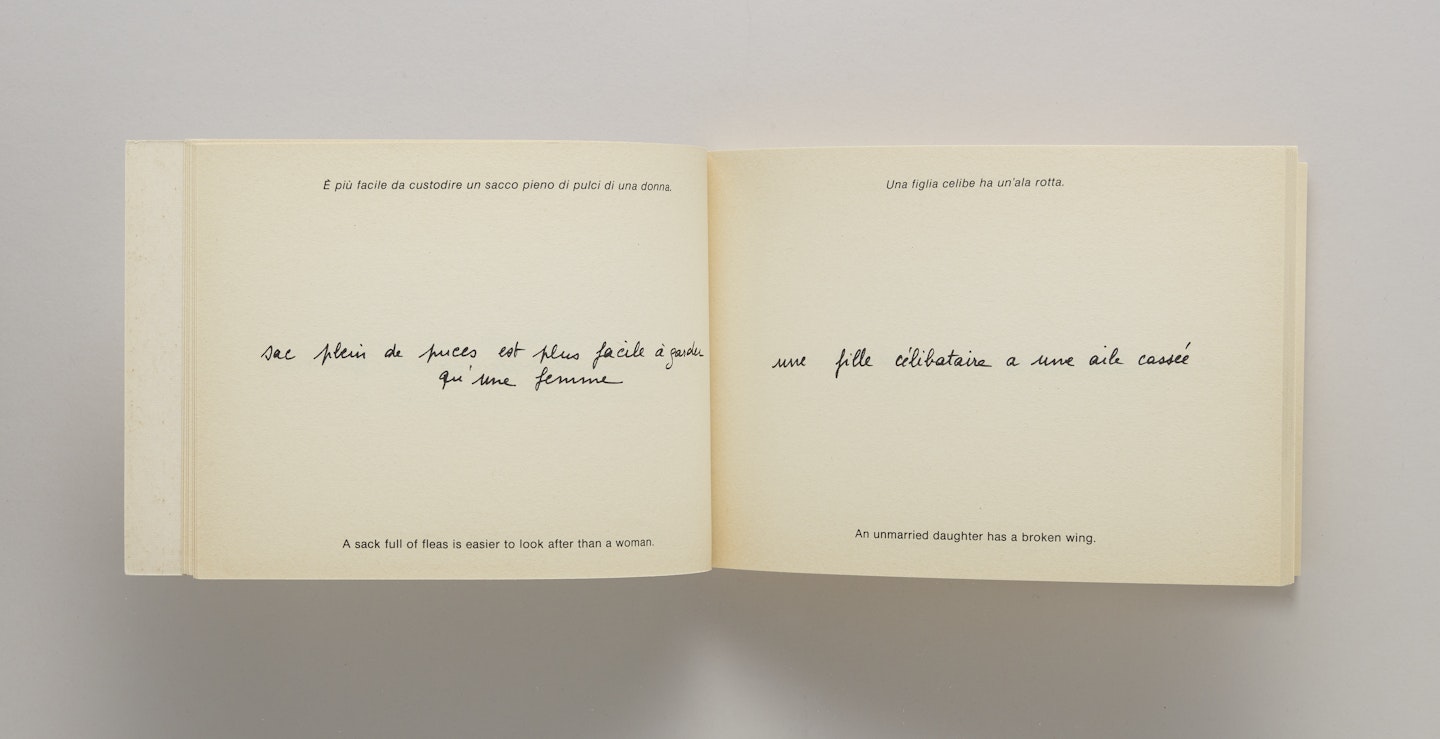 È più facile da custodire un sacco pieno di pulci di una donna.
sac plein de puces est plus facile à garder
qu'une femme
A sack full of fleas is easier to look after than a woman.
Una figlia celibe ha un'ala rotta.
une fille célibataire a une aile casseé
An unmarried daughter has a broken wing.